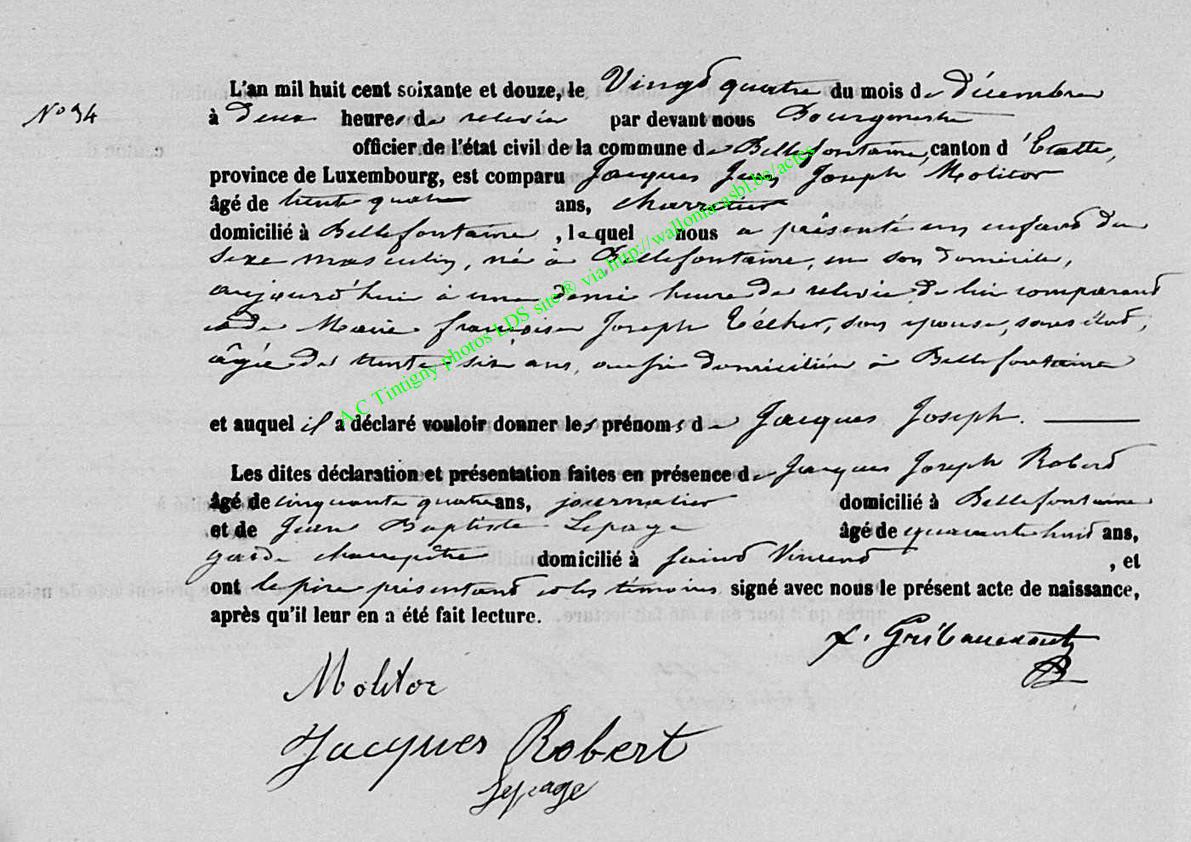 N° 34
L'an mil huit cent soixante et douze, le Vingt quatre du mois de décembre
à Deux heures de relevée par devant nous Bourgmestre
officier de l'état civil de la commune de Bellefontaine, canton d'Etalle,
province de Luxembourg, est comparu Jacques Jean Joseph Molitor
âgé de trente quatre ans, charretier
domicilié à Bellefontaine, lequel nous a présenté un enfant du
sexe masculin, né à Bellefontaine, en son domicile,
aujourd'hui à une demi heure de relevée de lui comparant
et de Marie françoise Joseph son épouse, sans état,
âgée de trente six ans, aussi domiciliée à Bellefontaine
et auquel il a déclaré vouloir donner les prénoms de Jacques Joseph.
Les dites déclaration et présentation faites en présence de Jacques Joseph Robert
âgé de cinquante quatre ans, journalier domicilié à Bellefontaine
et de Jean Baptiste Lepage âgé de quarante huit ans,
garde champêtre domicilié à Saint Vincent, et
ont le père présentant et les témoins signé avec nous le présent acte de naissance,
après qu'il leur en a été fait lecture.
Molitor
Jacques Robert
Lepage
A.C Tintigny photos LDS site® via http://wallonia.asbl.be/actes